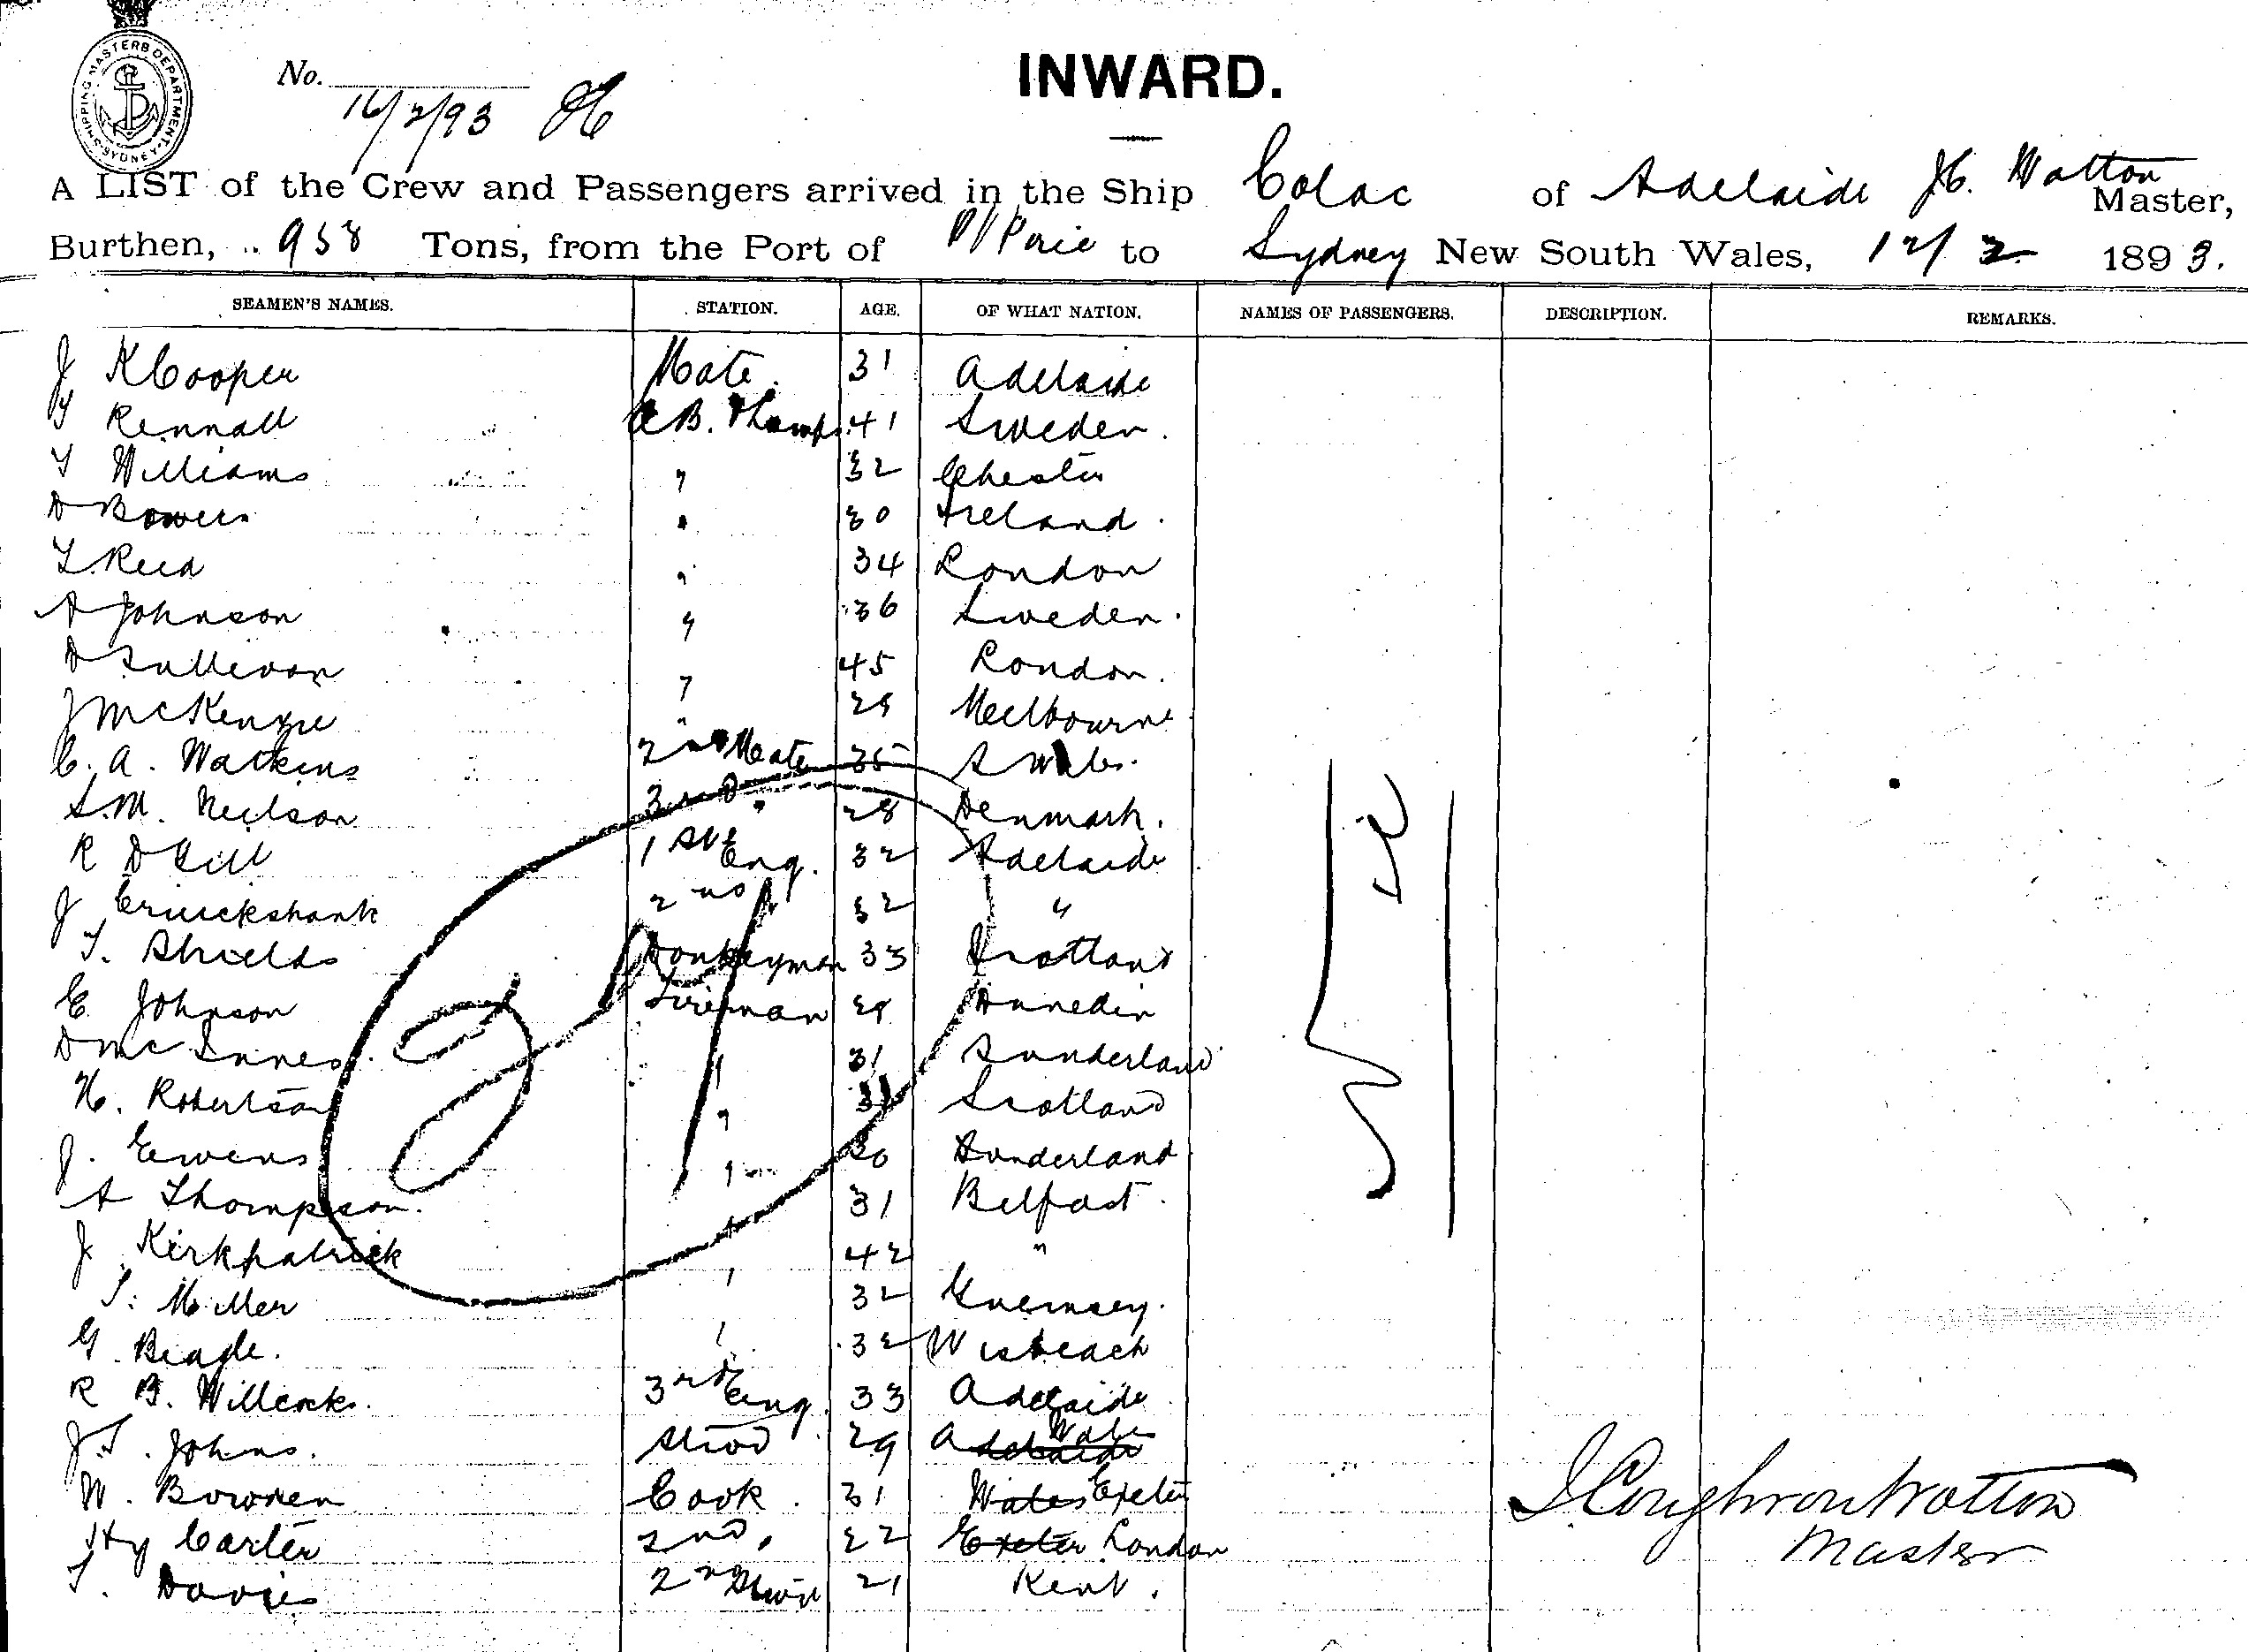 SHIPPING MASTERS DEPARTMENT. SYDNEY.
No.
INWARD.
A LIST of the Crew and Passengers arrived in the Ship Colac of Adelaide Master,
Burthen, 958 Tons, from the Port of P/Pirie to Sydney New South Wales, 12/2 1893.
SEAMEN'S NAMES. STATION. AGE. OF WHAT NATION. NAMES OF PASSENGERS. DESCRIPTION. REMARKS.
J K Cooper Mate. 31 Adelaide
Rennall A B. 41 Sweden.
T Williams " 32 Chester
D Bowers " 30 Ireland.
T. Reed " 34 London
A Johnson " 36 Sweden.
D Sullivan " 45 London.
J McKenzie " 29 Melbourne
C. A. Watkins 2nd Mate 35 S Wales.
S. M. Neilson 3rd " 28 Denmark.
R D Gill 1st Eng. 32 Adelaide
J Cruickshank 2nd 32 "
T. Shields Donkeyman 33 Scotland
C Johnson Fireman 29 Dunedin
D McInnes " 31 Sunderland
H. Robertson " 31 Scotland
J. Ewens " 30 Sunderland
A Thompson. " 31 Belfast.
J. Kirkpatrick " 42 "
T. Miller " 32 Guernsey.
G. Beagle. " 32 Wisbeach
R B. Willcocks. 3rd Eng. 33 Adelaide
J. T. Johns. Stwd 29 Adelaide Wales
W. Bowden Cook. 31 Wales Exeter
Hy Carter 2nd " 22 Exeter London
T. Davies 2nd Stwd 21 Kent.
Master